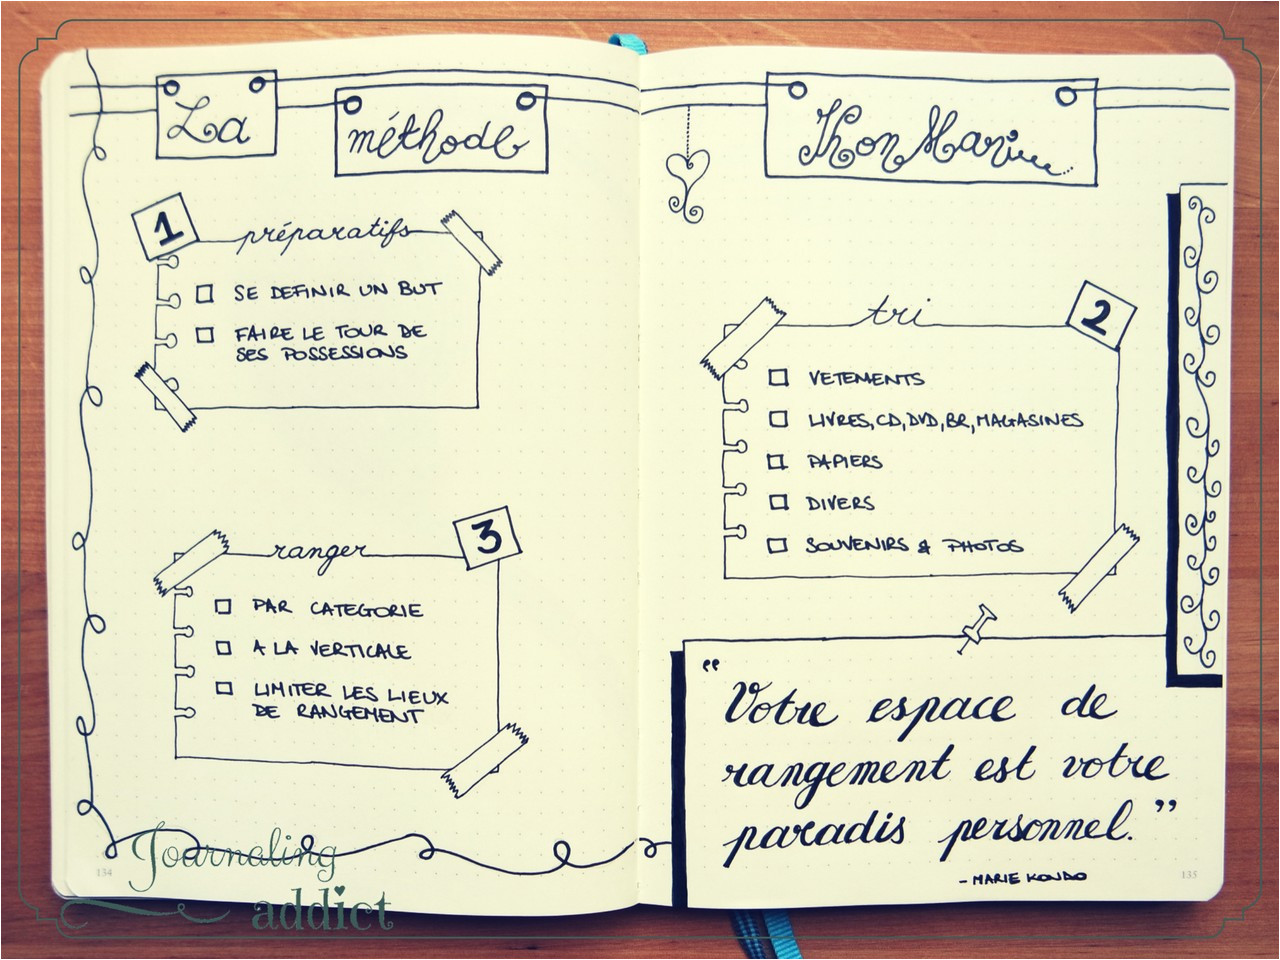 La
méthode
KonMarie
1
préparatifs
SE DEFINIR UN BUT
FAIRE LE TOUR DE
SES POSSESSIONS
3
ranger
PAR CATEGORIE
A LA VERTICALE
LIMITER LES LIEUX
DE RANGEMENT
134
Journaling
addict
2
tri
VETEMENTS
LIVRES,CD,DVD,BR,MAGASINES
PAPIERS
DIVERS
SOUVENIRS & PHOTOS
“Votre espace de
rangement est votre
paradis personnel.”
- MARIE KONDO
135